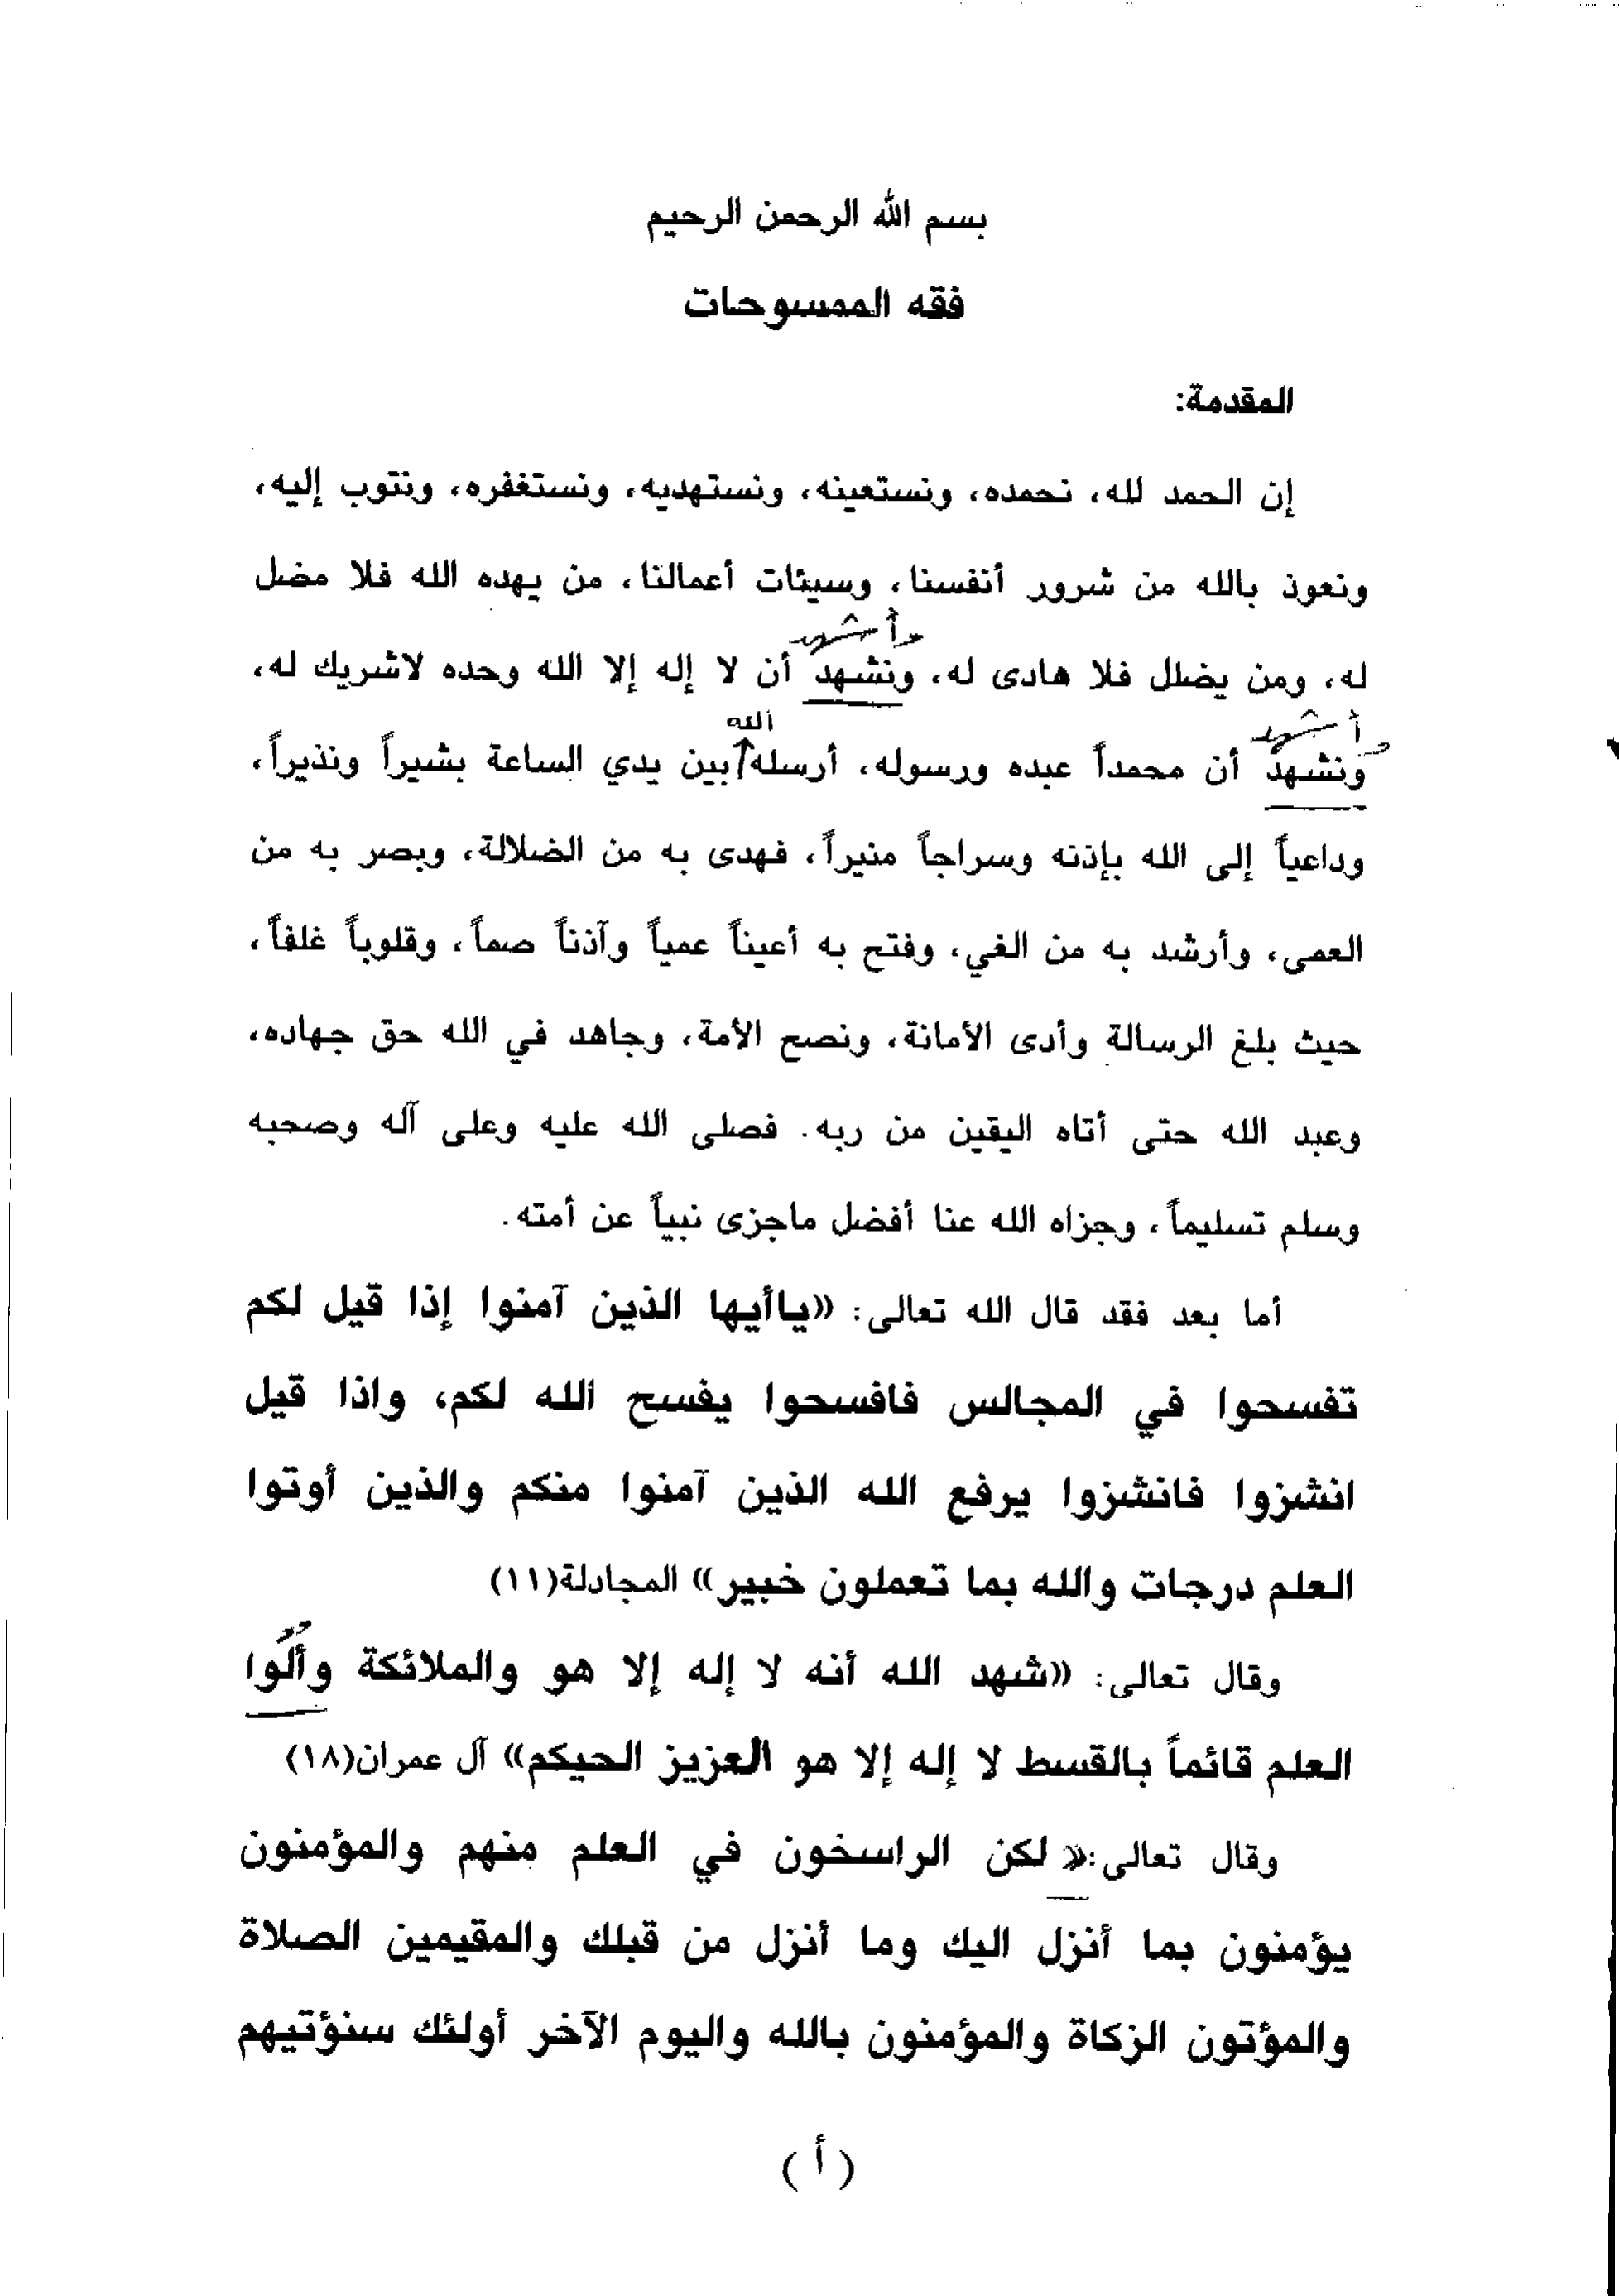 بسم الله الرحمن الرحيم
فقه الممسوحات
المقدمة:
إن الحمد لله، نحمده، ونستعينه، ونستهديه، ونستغفره، ونتوب إليه،
ونعوذ بالله من شرور أنفسنا، وسيئات أعمالنا، من يهده الله فلا مضل
وأشهد
له، ومن يضلل فلا هادى له، ونشهد أن لا إله إلا الله وحده لاشريك له،
الله
وأشهد
ونشهد أن محمداً عبده ورسوله، أرسله بين يدي الساعة بشيراً ونذيراً،
وداعياً إلى الله بإذنه وسراجاً منيراً، فهدى به من الضلالة، وبصر به من
العمى، وأرشد به من الغي، وفتح به أعيناً عمياً وآذناً صماً، وقلوباً غلفاً،
حيث بلغ الرسالة وأدى الأمانة، ونصح الأمة، وجاهد في الله حق جهاده،
وعبد الله حتى أتاه اليقين من ربه. فصلى الله عليه وعلى آله وصحبه
وسلم تسليماً، وجزاه الله عنا أفضل ماجزى نبياً عن أمته.
أما بعد فقد قال الله تعالى: «ياأيها الذين آمنوا إذا قيل لكم
تفسحوا في المجالس فافسحوا يفسح الله لكم، واذا قيل
انشزوا فانشزوا يرفع الله الذين آمنوا منكم والذين أوتوا
العلم درجات والله بما تعملون خبير» المجادلة(١١)
وقال تعالى: «شهد الله أنه لا إله إلا هو والملائكة وألُوا
العلم قائماً بالقسط لا إله إلا هو العزيز الحيكم» آل عمران(١٨)
وقال تعالى:« لكن الراسخون في العلم منهم والمؤمنون
يؤمنون بما أنزل اليك وما أنزل من قبلك والمقيمين الصلاة
والمؤتون الزكاة والمؤمنون بالله واليوم الآخر أولئك سنؤتيهم
(أ)